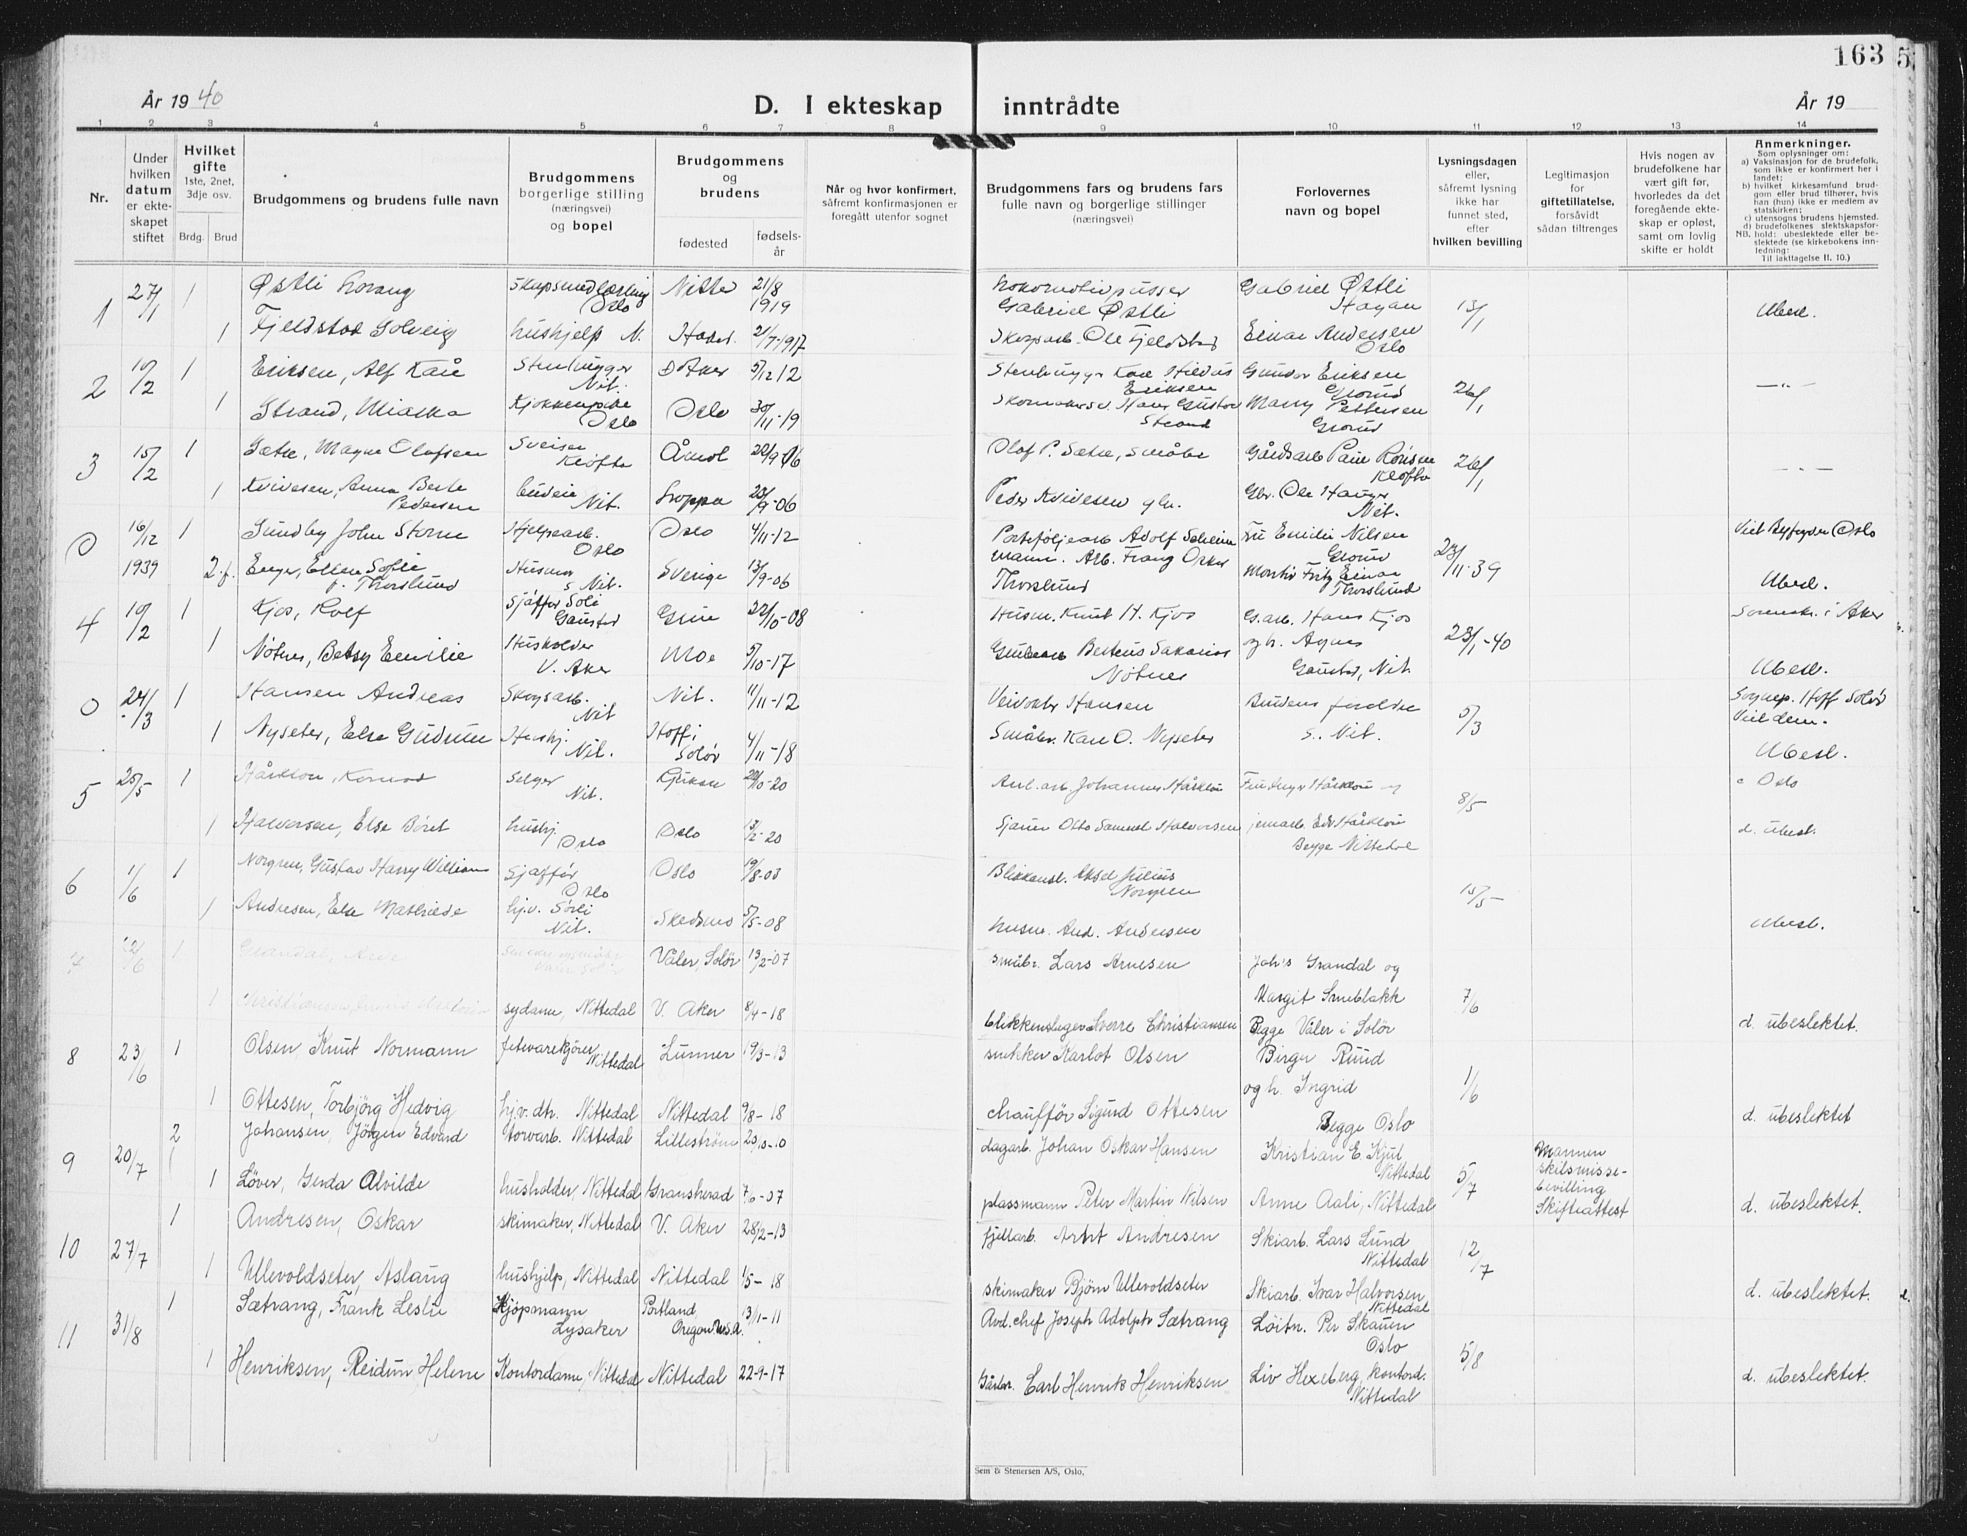 163
5
År 1940
D. I ekteskap inntrådte
År 19
1 2 3 4 5 6 7 8 9 10 11 12 13 14
Nr.
Under hvilken datum er ekteskapet stiftet
Hvilket gifte
1ste, 2net, 3dje osv.
Brdg. Brud
Brudgommens og brudens fulle navn
Brudgommens borgerlige stilling (næringsvei) og bopel
Brudgommens og brudens
fødested
fødselsår
Når og hvor konfirmert, såfremt konfirmasjonen er foregått utenfor sognet
Brudgommens fars og brudens fars fulle navn og borgerlige stillinger (næringsvei)
Forlovernes navn og bopel
Lysningsdagen eller, såfremt lysning ikke har funnet sted, efter hvilken bevilling
Legitimasjon for giftetillatelse, forsåvidt sådan tiltrenges
Hvis nogen av brudefolkene har vært gift før, hvorledes da det foregående ekteskap er opløst, samt om lovlig skifte er holdt
Anmerkninger.
Som oplysninger om:
a) Vaksinasjon for de brudefolk, som ikke er konfirmert her i landet;
b) hvilket kirkesamfund brudgom eller brud tilhører, hvis han (hun) ikke er medlem av statskirken;
c) utensogns brudens hjemsted.
d) brudefolkenes slektskapsforhold: ubeslektede eller beslektede (se kirkebokens innledning:
NB. Til iakttagelse II. 10.)
1 27/1 1 Østli Lorang Oslo 21/8 1919 Gabriel Østli Gabriel Østli Hagan 13/1 Ubesl.
1 Fjeldstad Solveig hushjelp N. 21/7-1917 Ole Fjeldstad Einar Andersen Oslo
2 10/2 1 Eriksen, Alf Nit. Ø Aker 5/12 12 Eriksen Gunder Eriksen Grorud 26/1 —"—
1 Strand, Oslo Oslo 30/11-19 Hans Gustav Strand Mary Pettersen Grorud
3 15/2 1 Sætre, Magne Olafsen Sveiser Kløfta Åmot Olaf P. Sætre, Småbr. Kløfta 26/1 —"—
1 Anna Berte Pedersen Nit. 23/9-06 Peder Gbr. Ole Hauger Nit.
0 16/12 1939 1 Sundby John Storm Hjelpearb. Oslo Oslo 4/11-12 Adolf Fru Emilie Nilsen Grorud 23/11-39 Oslo
2.f. Enger, Ellen Sofie f. Thorslund Husmor S. Nit. Sverige 13/9-06 Arb. Frang Oskar Thorslund Montør Fritz Einar Thorslund Ubesl.
4 10/2 1 Kjos, Rolf Sjåfør Gaustad Grue 22/10-08 Husm. Knut H. Kjos G.arb. Hans Kjos 23/1-40 i Aker
1 Nøtnes, Betsy Emilie Husholder V. Aker Moe 5/10-17 Nøtnes og h. Agnes Gaustad, Nit. Ubesl.
0 24/3 1 Hansen Andreas Skogsarb. Nit Nit. 11/11-12 Veivokter Hansen Brudens foreldre 5/3 Sognep. Hoff Solør
1 Nyseter, Else Gudrun Hushj. Nit. Hoff i Solør 4/11-18 Småbr. Karl O. Nyseter S. Nit. Ubesl.
5 25/5 1 Hårklou, Konrad Selger Nit. 20/10-20 Anl.arb. Johannes Hårklou 8/5 c Oslo
1 Halvorsen, Else Børet hushj. Oslo Oslo Otto Samuel Halvorsen Hårklou Begge Nittedal d. ubesl.
6 1/6 1 Norgren, Gustav Harry William Sjåfør Oslo Oslo 19/8-08 Blikkensl. Aksel Julius Norgren 15/5
1 Andresen, Else Mathilde hj.v. Sørli Nit. Skedsmo 5/5-08 husm. And. Andersen Ubesl.
1 Grandal, Våler, Solør 13/2-07 småbr. Lars Arnesen Joh's Grandal og 7/6
1 Christiansen, sydame, Nittedal V. Aker 8/4-18 blikkenslager Sverre Christiansen Margit Smeblakk Begge Våler i Solør d. ubeslektet.
8 23/6 1 Olsen, Knut Normann fetevarekjører, Nittedal Lunner 19/3-13 snekker Karlot Olsen Birger Ruud og h. Ingrid 1/6
1 Ottesen, Torbjørg Hedvig hj.v.dtr. Nittedal Nittedal 9/8-18 chauffør Sigurd Ottesen Begge Oslo d. ubeslektet
9 20/7 2 Johansen, Jörgen Edvard torvarb. Nittedal Lilleström 20/10-10 dagarb. Johan Oskar Hansen Kristian E. Kjul Nittedal 5/7 Mannen skilsmisse-bevilling Skifteattest
1 Löver, Gerda Alvilde husholder, Nittedal Gransherad 7/6-07 plassmann Peter Martin Nilsen Anne Aali, Nittedal d. ubeslektet.
10 27/7 1 Andresen, Oskar skimaker, Nittedal V. Aker 28/2-13 fjellarb. Andresen Skiarb. Lars Lund Nittedal 12/7
1 Ullevoldseter, Aslaug hushjelp, Nittedal Nittedal 1/5-18 skimaker Bjørn Ullevoldseter Skiarb. Ivar Halvorsen Nittedal d. ubeslektet.
11 31/8 1 Sætrang, Frank Leslie Kjöpmann Lysaker Portland Oregon U.S.A. 13/11-11 Avd.chef Joseph Adolph Sætrang Löitn. Per Skauen Oslo 5/8
1 Henriksen, Reidun Helene Kontordame, Nittedal Nittedal 22-9-17 Gårbr. Carl Henrik Henriksen Liv Hexeberg, kontord. Nittedal d. ubeslektet.
Sem & Stenersen A/S, Oslo.